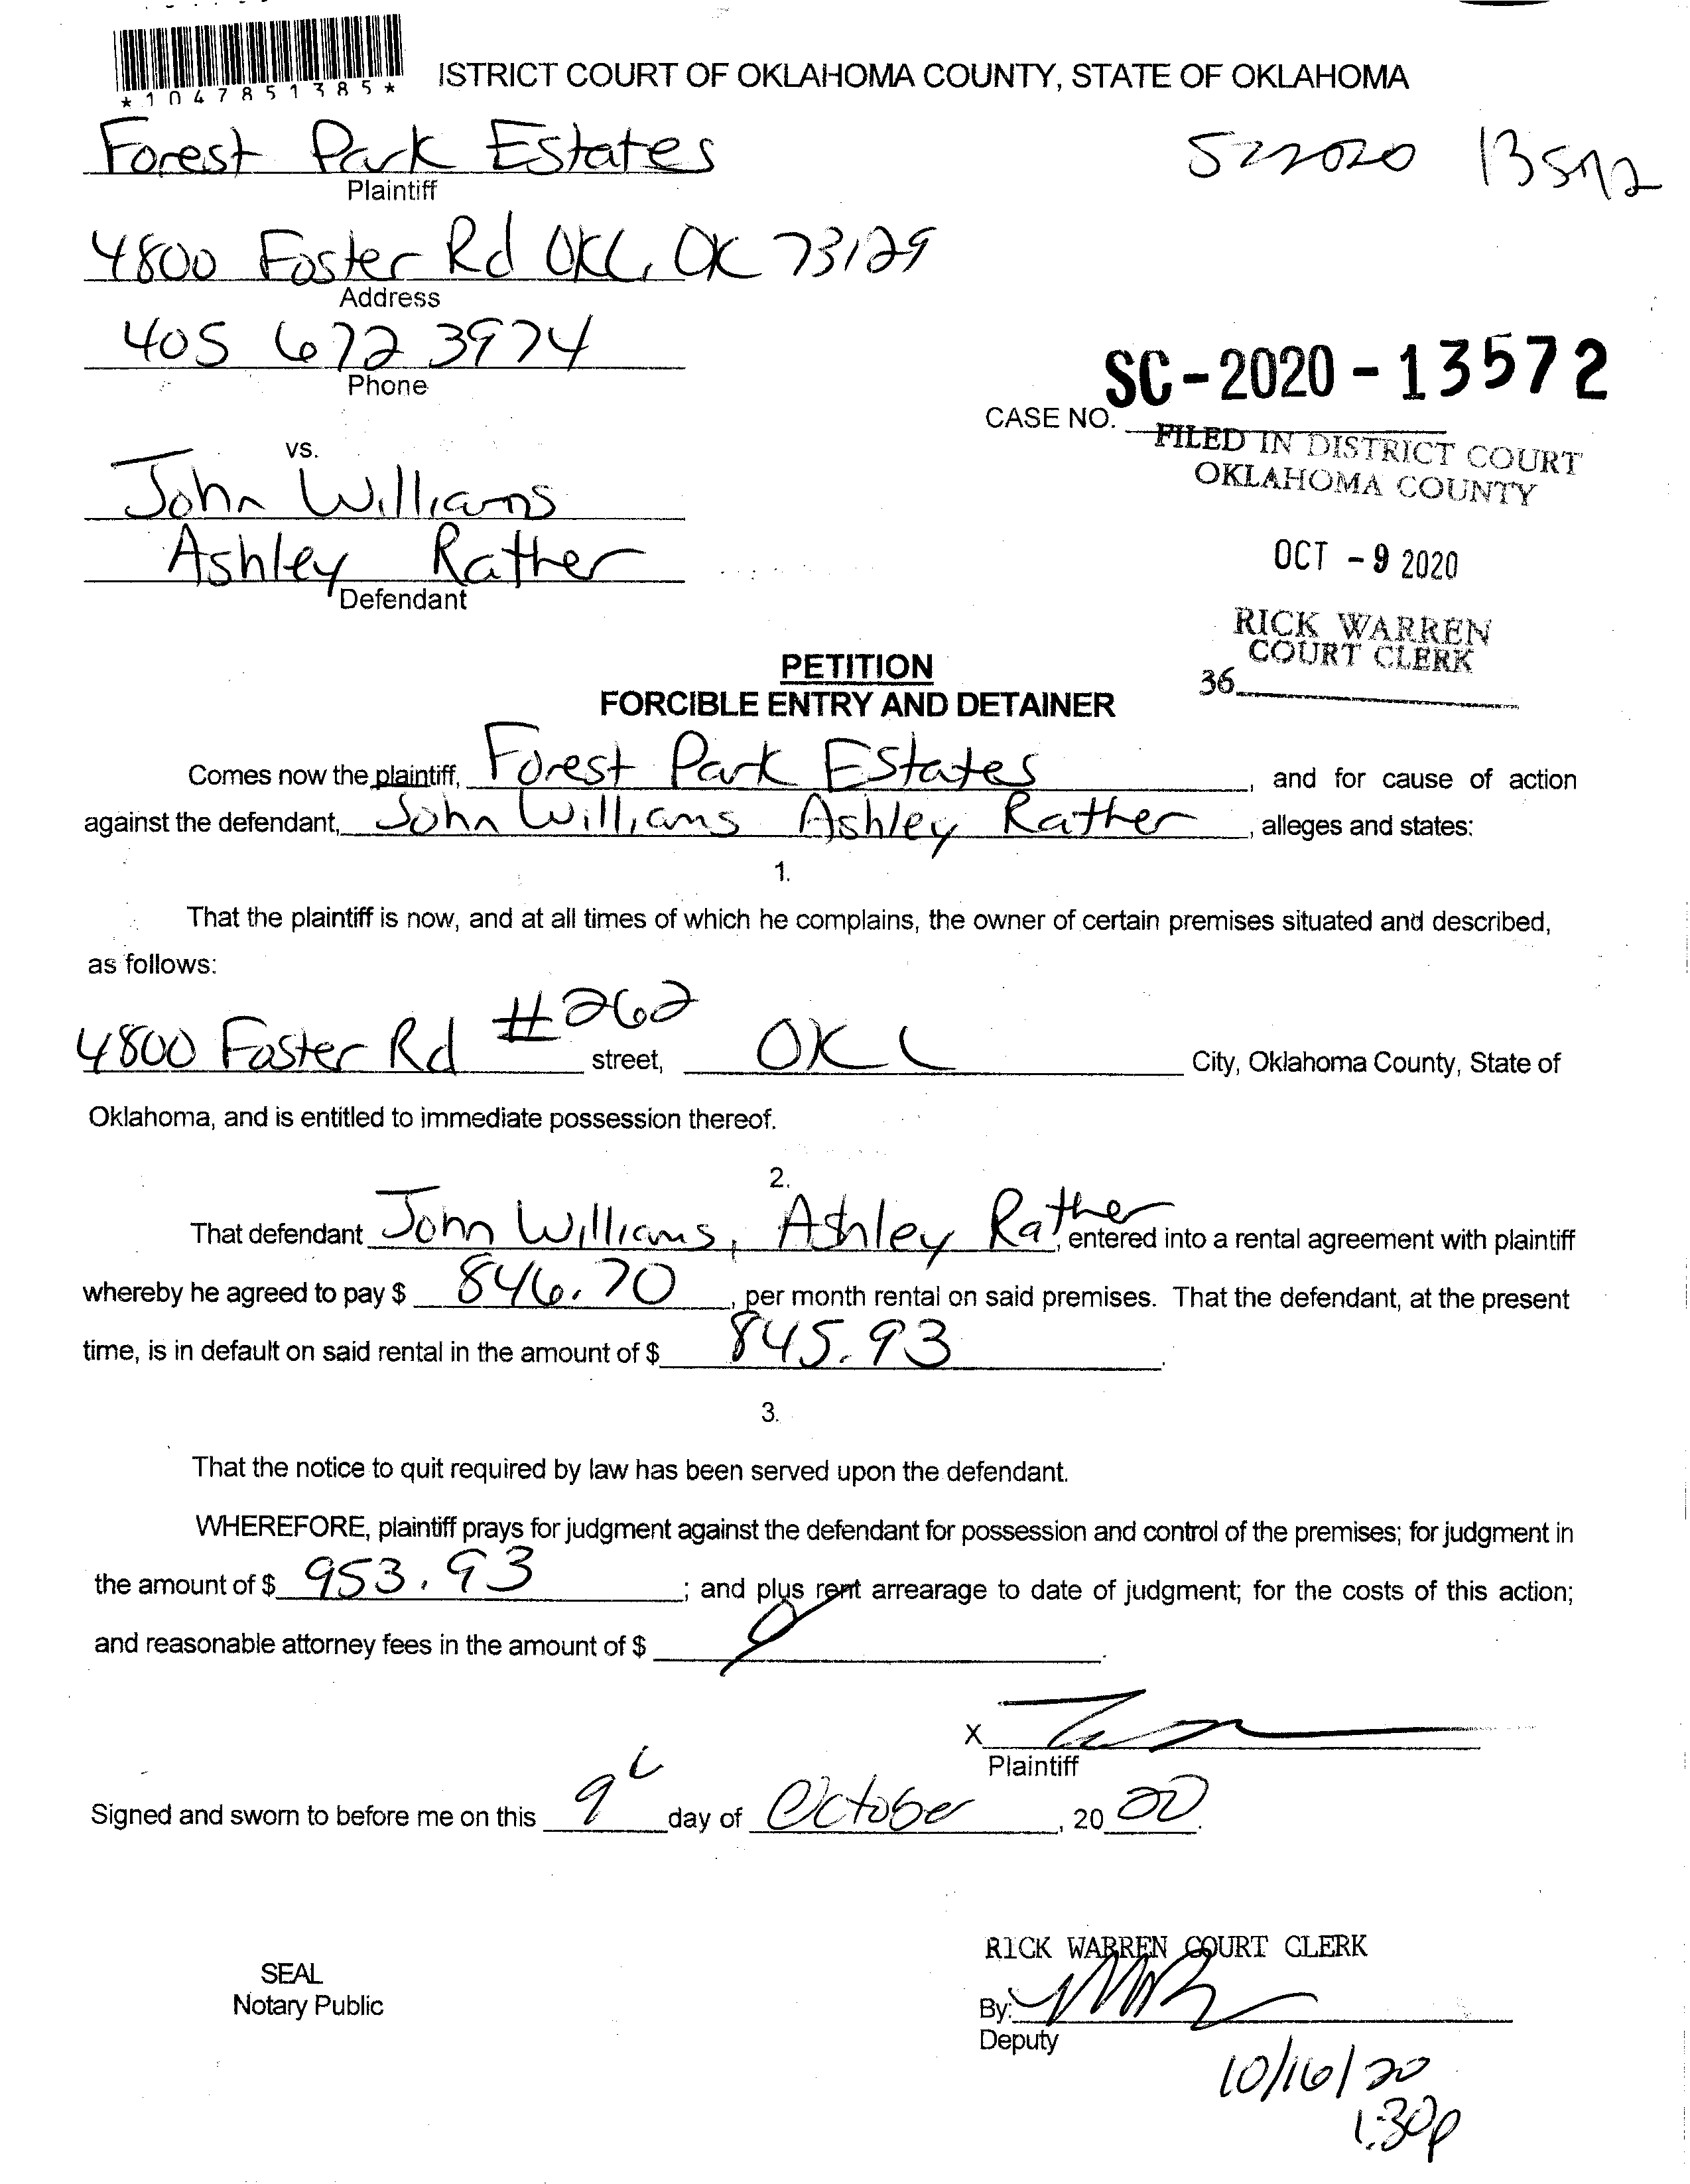 *1047851385*
ISTRICT COURT OF OKLAHOMA COUNTY, STATE OF OKLAHOMA
Forest Park Estates
Plaintiff
4800 Foster Rd OKC, OK 73129
Address
405 672 3974
Phone
SC-2020-13572
CASE NO.
FILED IN DISTRICT COURT
OKLAHOMA COUNTY
vs.
John Williams
Ashley Rather
Defendant
OCT -9 2020
RICK WARREN
COURT CLERK
36
PETITION
FORCIBLE ENTRY AND DETAINER
Comes now the plaintiff, Forest Park Estates, and for cause of action
against the defendant, John Williams Ashley Rather, alleges and states:
1.
That the plaintiff is now, and at all times of which he complains, the owner of certain premises situated and described,
as follows:
4800 Foster Rd #262 street, OKC City, Oklahoma County, State of
Oklahoma, and is entitled to immediate possession thereof.
2.
That defendant John Williams, Ashley Rather, entered into a rental agreement with plaintiff
whereby he agreed to pay $ 846.70, per month rental on said premises. That the defendant, at the present
time, is in default on said rental in the amount of $ 845.93.
3.
That the notice to quit required by law has been served upon the defendant.
WHEREFORE, plaintiff prays for judgment against the defendant for possession and control of the premises; for judgment in
the amount of $ 953.93; and plus rent arrearage to date of judgment; for the costs of this action;
and reasonable attorney fees in the amount of $
X
Plaintiff
Signed and sworn to before me on this 9 day of October, 20 20.
RICK WARREN COURT CLERK
SEAL
Notary Public
By:
Deputy
10/16/20
1:30p